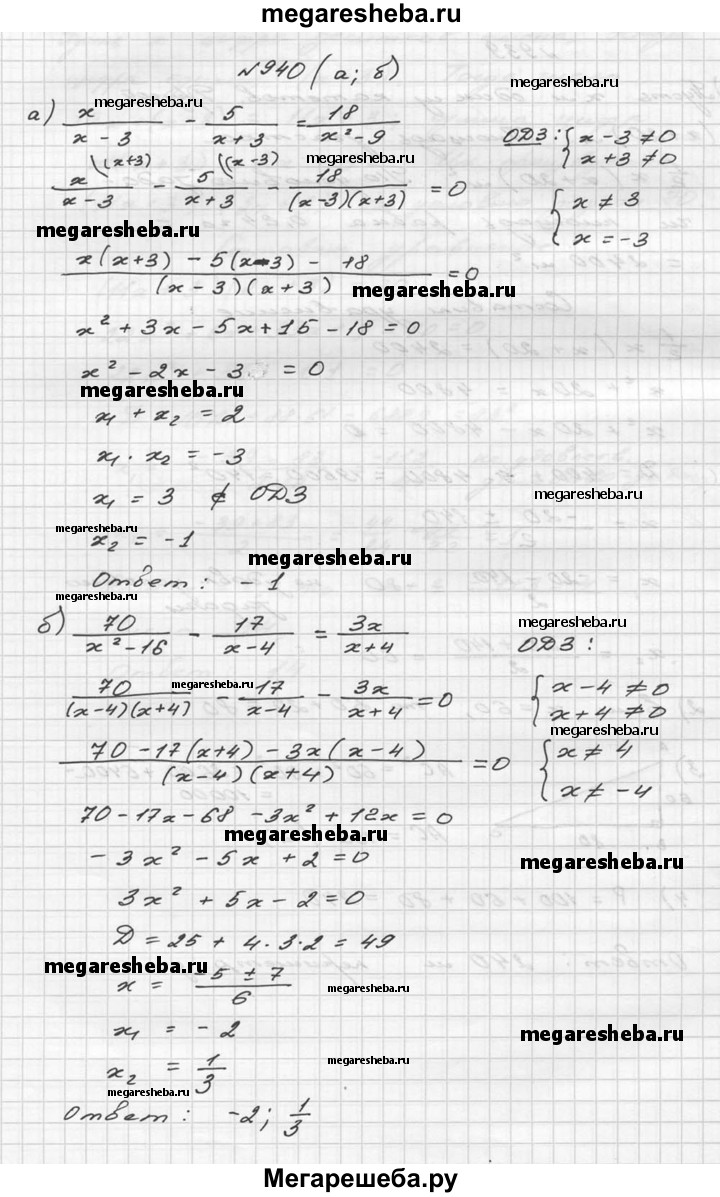 megaresheba.ru
№940 (а; б)
а) x/(x - 3) - 5/(x + 3) = 18/(x² - 9)
megaresheba.ru
megaresheba.ru
ОДЗ: { x - 3 ≠ 0
x + 3 ≠ 0
x\(x+3)/(x - 3) - 5\(x-3)/(x + 3) - 18/((x-3)(x+3)) = 0
megaresheba.ru
{ x ≠ 3
x = -3
megaresheba.ru
(x(x+3) - 5(x-3) - 18)/((x - 3)(x + 3)) = 0
megaresheba.ru
x² + 3x - 5x + 15 - 18 = 0
x² - 2x - 3 = 0
megaresheba.ru
x₁ + x₂ = 2
x₁ · x₂ = -3
x₁ = 3 ∉ ОДЗ
megaresheba.ru
megaresheba.ru
x₂ = -1
megaresheba.ru
Ответ: -1
megaresheba.ru
б) 70/(x² - 16) - 17/(x - 4) = 3x/(x + 4)
megaresheba.ru
ОДЗ:
70/((x-4)(x+4)) - 17/(x-4) - 3x/(x+4) = 0
megaresheba.ru
{ x - 4 ≠ 0
x + 4 ≠ 0
megaresheba.ru
(70 - 17(x+4) - 3x(x-4))/((x-4)(x+4)) = 0
{ x ≠ 4
x ≠ -4
70 - 17x - 68 - 3x² + 12x = 0
megaresheba.ru
- 3x² - 5x + 2 = 0
megaresheba.ru
3x² + 5x - 2 = 0
D = 25 + 4·3·2 = 49
megaresheba.ru
x = (-5 ± 7)/6
megaresheba.ru
x₁ = -2
megaresheba.ru
x₂ = 1/3
megaresheba.ru
megaresheba.ru
Ответ: -2; 1/3
Мегарешеба.ру